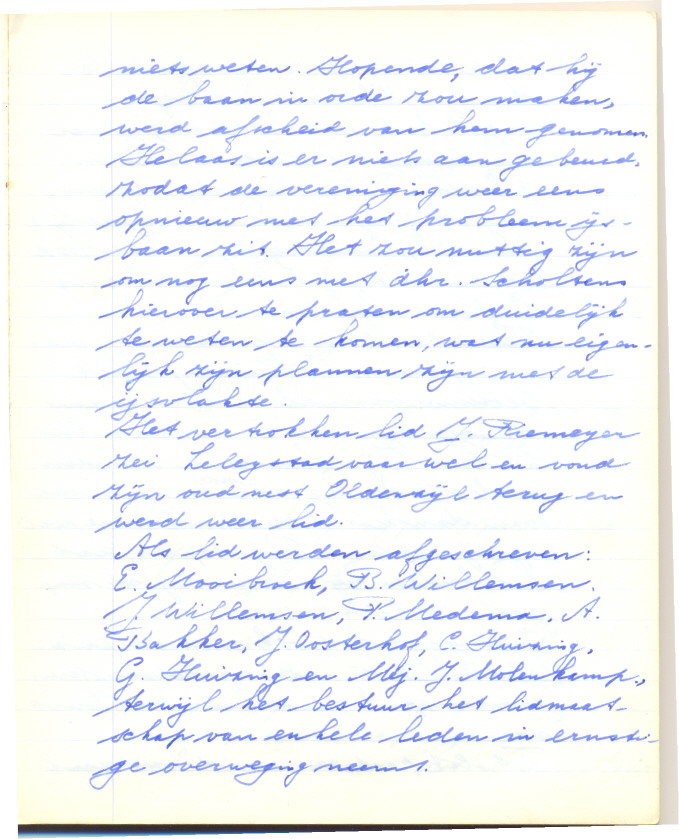 niets weten. Hopende, dat hij
de baan in orde zou maken,
werd afscheid van hem genomen.
Helaas is er niets aan gebeurd,
zodat de vereniging weer eens
opnieuw met het probleem ijs-
baan zit. Het zou nuttig zijn
om nog eens met dhr. Scholtens
hierover te praten om duidelijk
te weten te komen, wat nu eigen-
lijk zijn plannen zijn met de
ijsvlakte.
Het vertrokken lid J. Riemeyer
zei Lelegstad vaarwel en vond
zijn oud nest Oldewijl terug en
werd weer lid.
Als lid werden afgeschreven:
E. Mooibroek, B. Willemsen,
J Willemsen, P. Medema, A.
Bakker, J. Oosterhof, C. Huizing,
G. Huizing en Mej. J. Molenkamp,
terwijl het bestuur het lidmaat-
schap van enkele leden in ernsti-
ge overweging neemt.